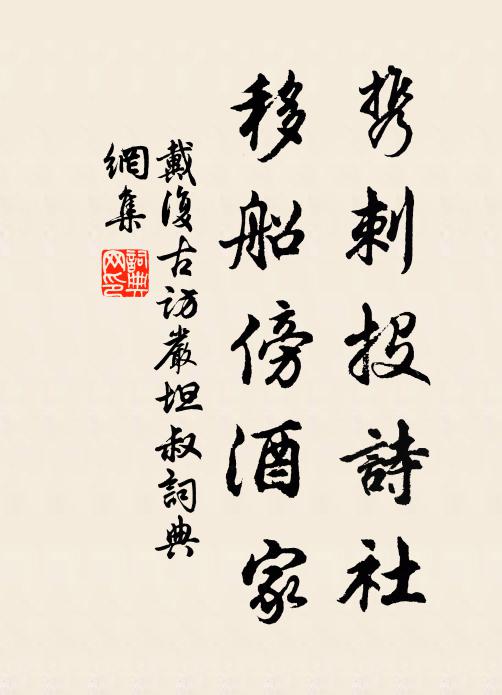 携刺投詩社
移船傍酒家
戴復古訪嚴坦叔詞典
網集
詞典網印